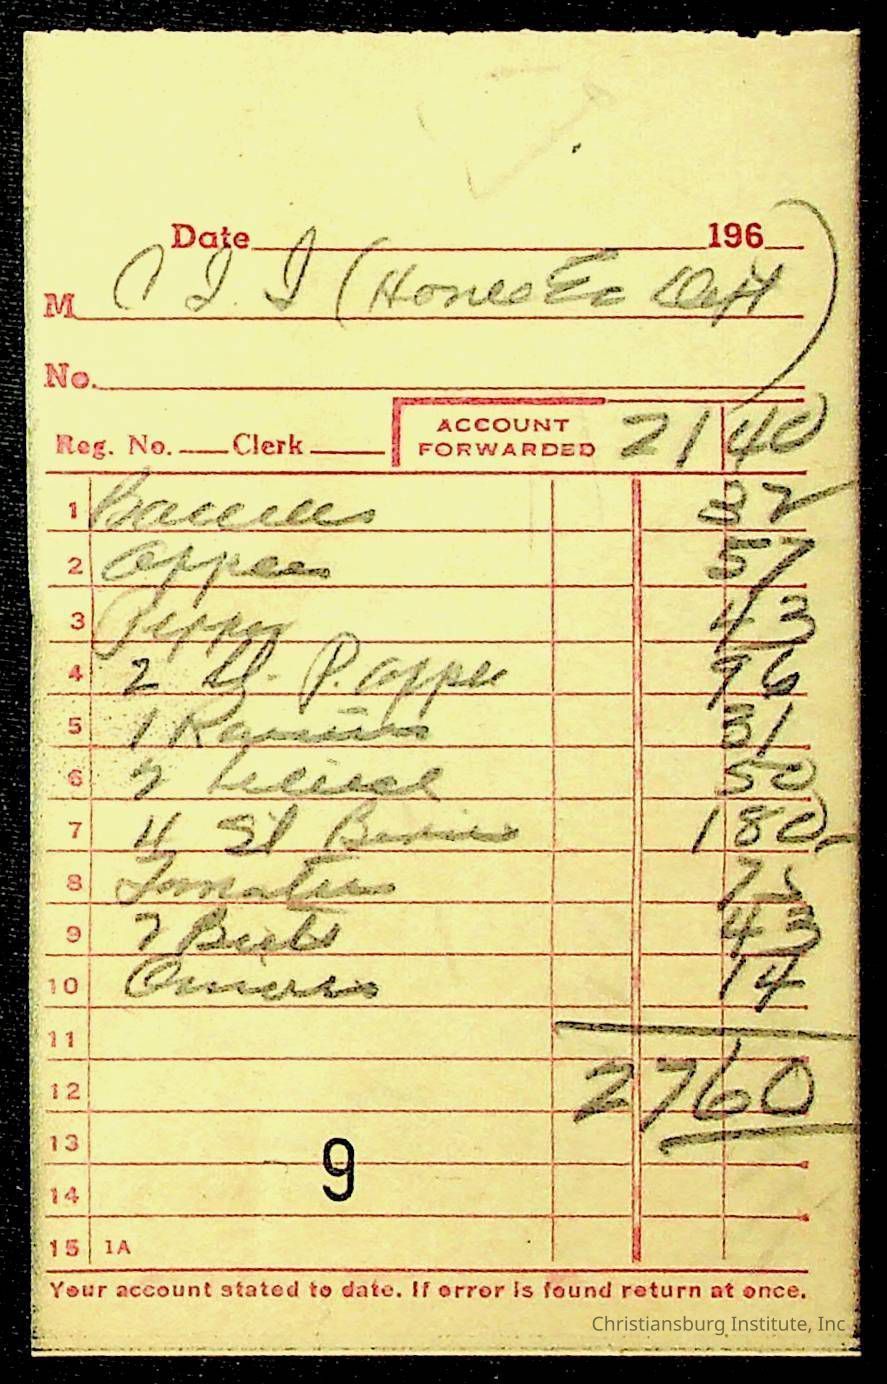 Date 196
M C I. I (Home Ec Dept)
No.
Reg. No. Clerk ACCOUNT FORWARDED 21 40
1 Bananas 32
2 Apples 57
3 43
4 2 P. apple 96
5 1 Raisins 31
6 2 50
7 4 St Berries 1 80
8 Tomatoes 75
9 2 Beets 43
10 Onions 14
11
12 27 60
13
9
14
15 1A
Your account stated to date. If error is found return at once.
Christiansburg Institute, Inc